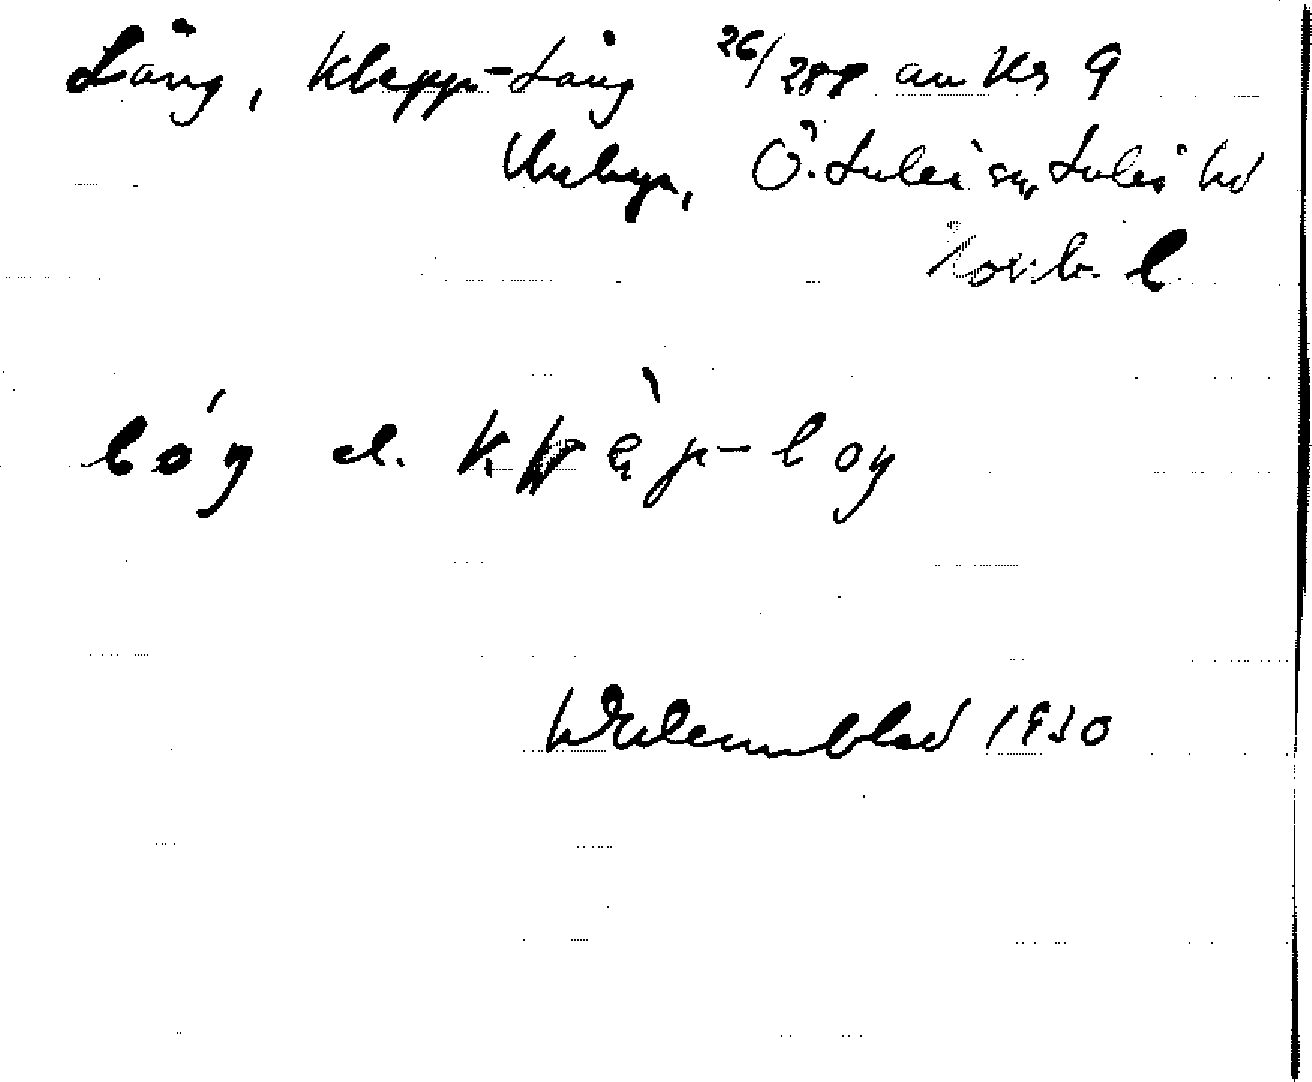 Lång, Klepp-Lång 26/288 av Kr 9
Unbyn, Ö. Luleå sn, Luleå hd
Norrb. l
lóŋ el. kļ̀ęp-loŋ
Wedemblad 1930